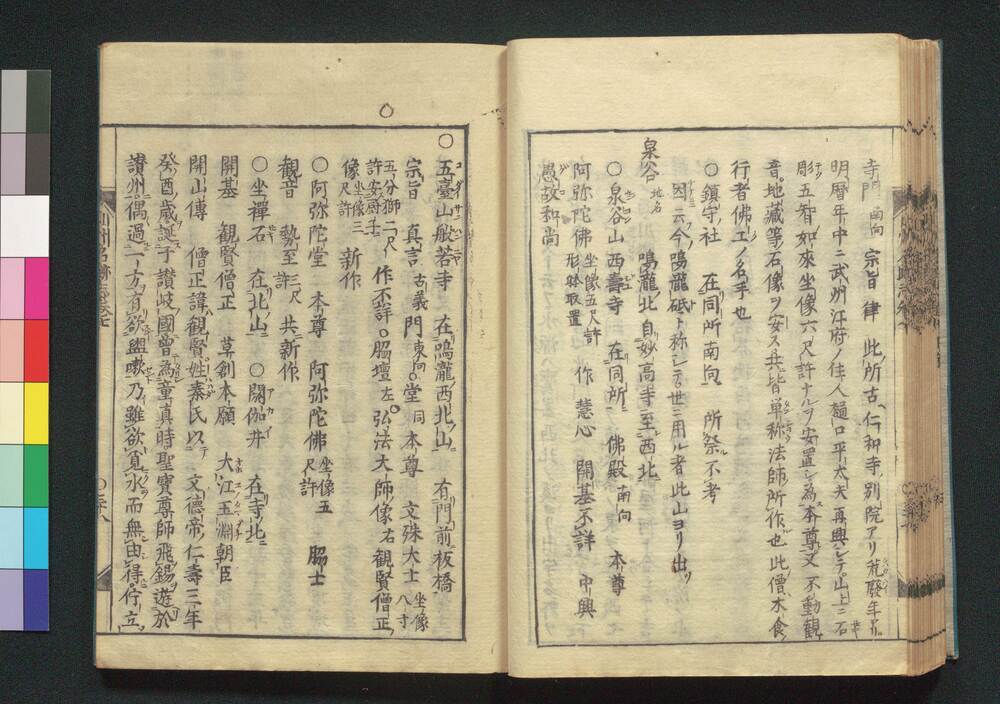 寺門 南向 宗旨 律 此所古仁和寺別院アリ荒廢年久
明暦年中ニ武州江府ノ住人樋口平太夫再興シテ山上ニ石
彫五智如來坐像六尺許ナルヲ安置シ為本尊又不動觀
音地藏等ノ石像ヲ安ス共皆単称法師所作也此僧木食
行者佛工ノ名手也
○鎮守社 在同所南向 所祭不考
因云今鳴瀧砥ト称シテ世ニ用ル者此山ヨリ出ツ
泉谷 地名 鳴瀧北自妙高寺至西北
○泉谷山西壽寺 在同所 佛殿 南向 本尊
阿弥陀佛 坐像五尺許 作 慧心 開基不詳 中興
愚故和尚
○五臺山般若寺 在鳴瀧西北山 有門前板橋
宗旨 真言 古義 門東向○堂 同 本尊 文殊大士 坐像八寸
五分獅二尺許安厨子 作不詳○脇壇 左 弘法大師像 右 観賢僧正
像 坐像三尺許 新作
○阿弥陀堂 本尊 阿弥陀佛 坐像五尺許 脇士
観音 勢至 三尺許 共新作
○坐禪石 在北山 ○閼伽井 在寺北
開基 観賢僧正 草創本願 大江玉淵朝臣
開山傳 僧正諱観賢姓秦氏以文德帝仁壽三年
癸酉歳誕于讃岐國曾為童真時聖寶尊師飛錫遊於
讃州偶過一方有欲盥嗽乃雖欲覓水而無由得佇立